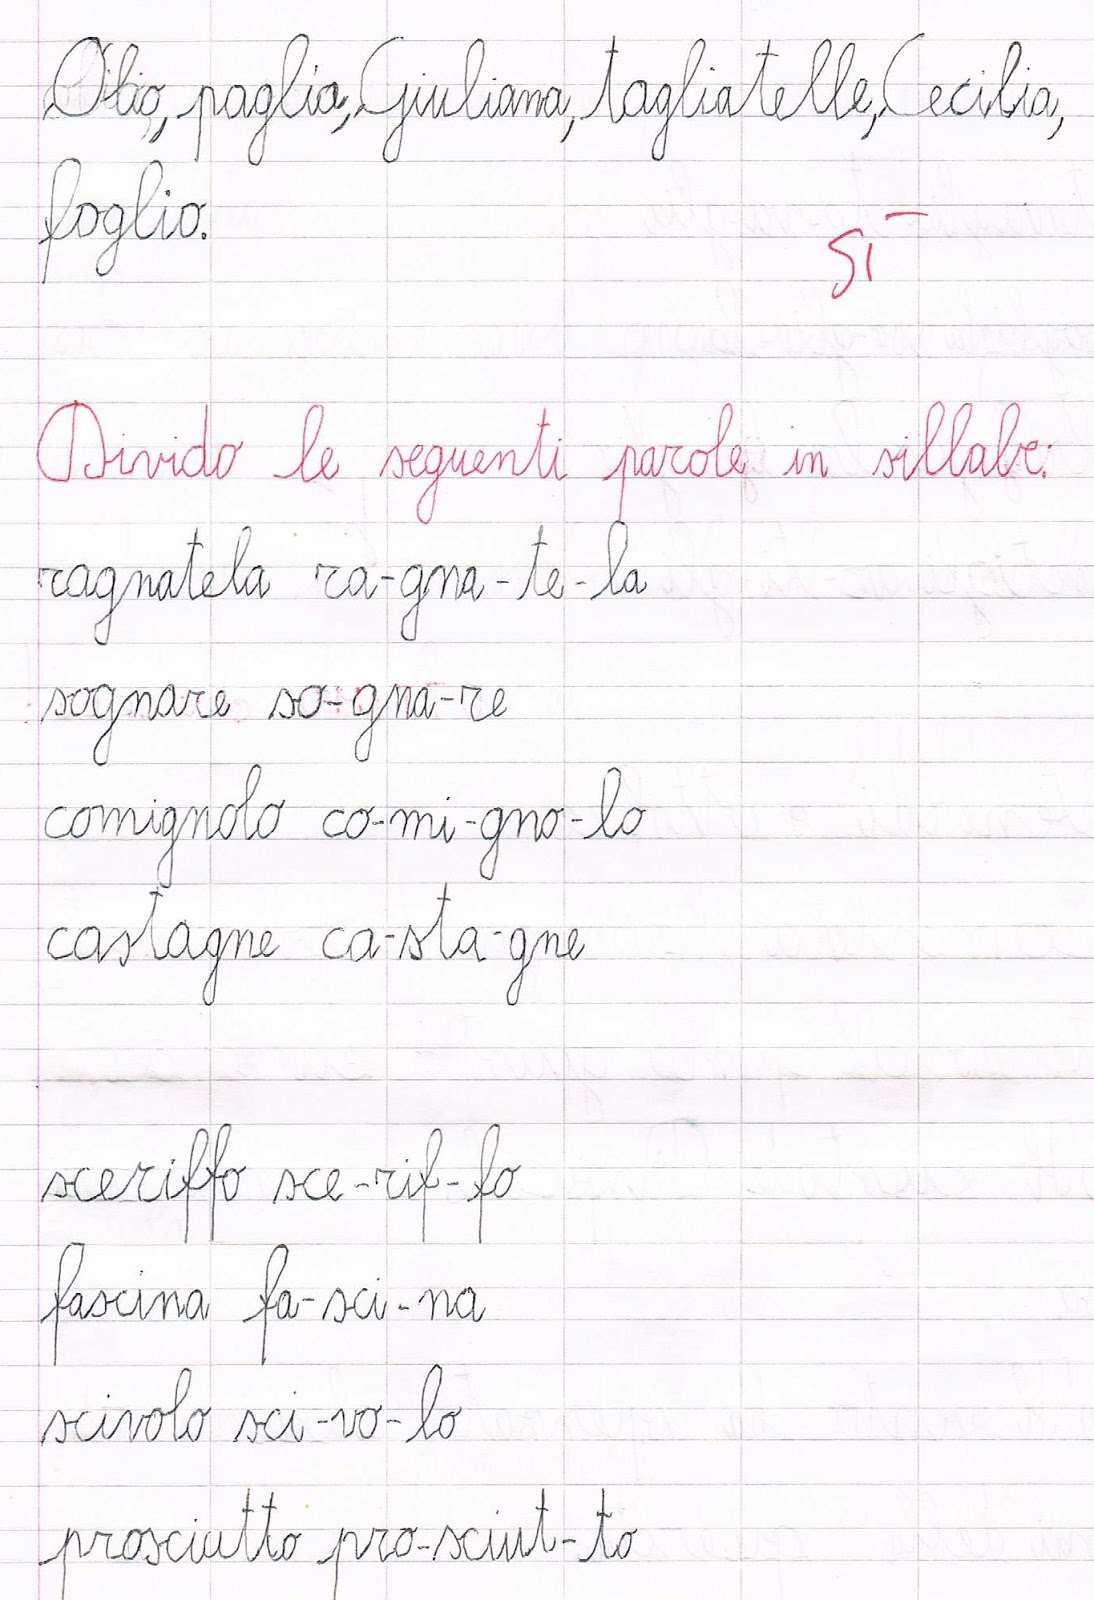 Olio, paglia, Giuliana, tagliatelle, Cecilia,
foglio.
Sì
Divido le seguenti parole in sillabe:
ragnatela ra-gna-te-la
sognare so-gna-re
comignolo co-mi-gno-lo
castagne ca-sta-gne
sceriffo sce-rif-fo
fascina fa-sci-na
scivolo sci-vo-lo
prosciutto pro-sciut-to